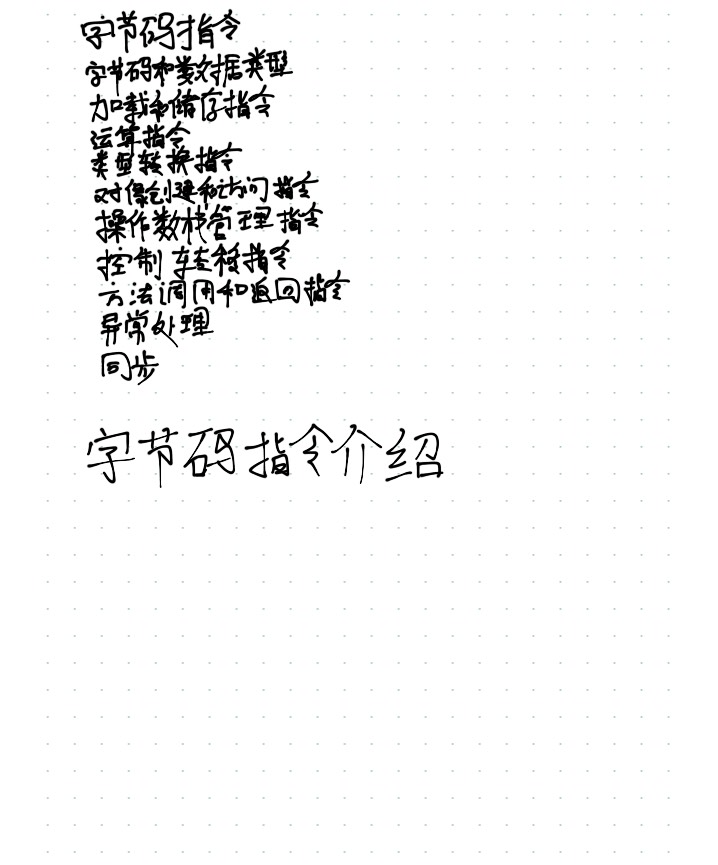 字节码指令
字节码和数据类型
加载和储存指令
运算指令
类型转换指令
对像创建和访问指令
操作数栈管理指令
控制转移指令
方法调用和返回指令
异常处理
同步
字节码指令介绍